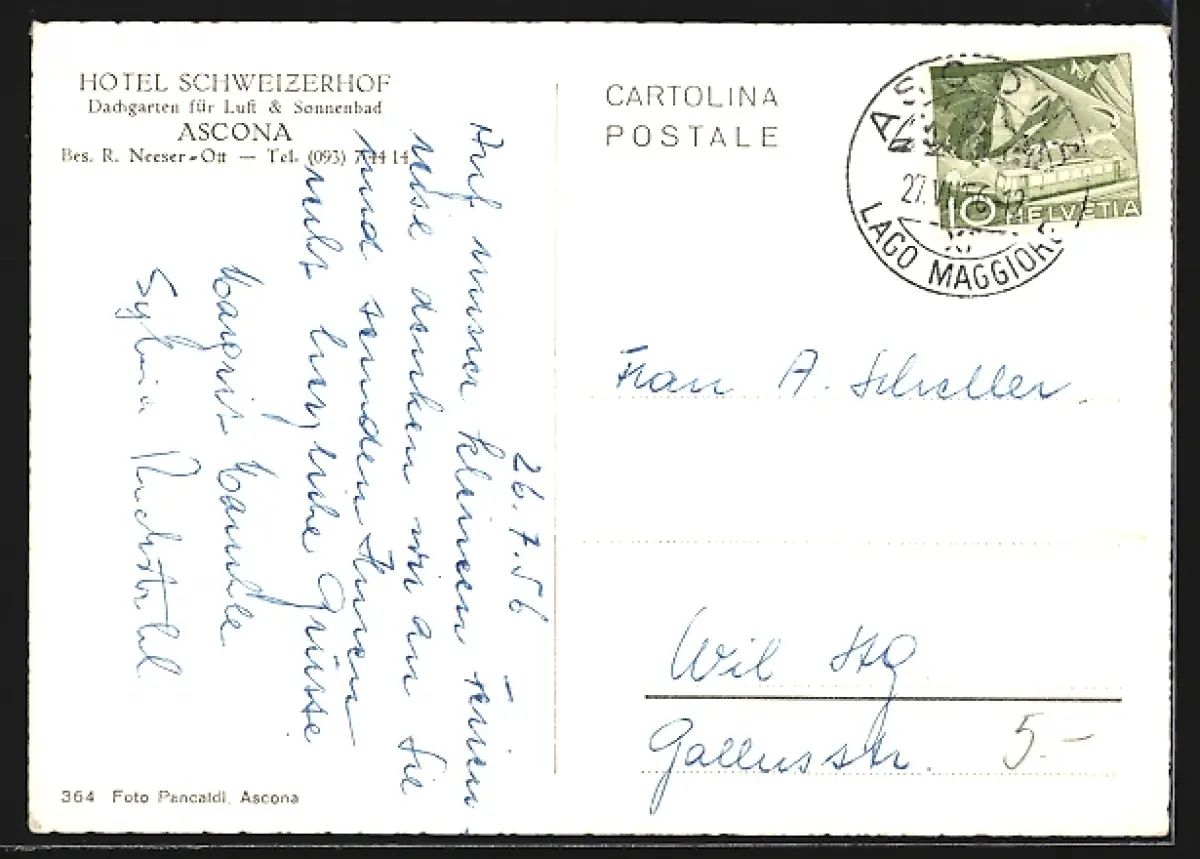 HOTEL SCHWEIZERHOF
Dachgarten für Luft & Sonnenbad
ASCONA
Bes. R. Neeser-Ott — Tel. (093) 7 44 14
26.7.56
Auf unserer kleinen Ferien-
reise denken wir an Sie
und senden Ihnen
recht herzliche Grüsse
Margrit
Sylvia
364 Foto Pancaldi, Ascona
CARTOLINA
POSTALE
ASCONA
27.VII.56-12
LAGO MAGGIORE
10 HELVETIA
Frau A. Scheller
Wil Stg
Gallusstr.
5.-